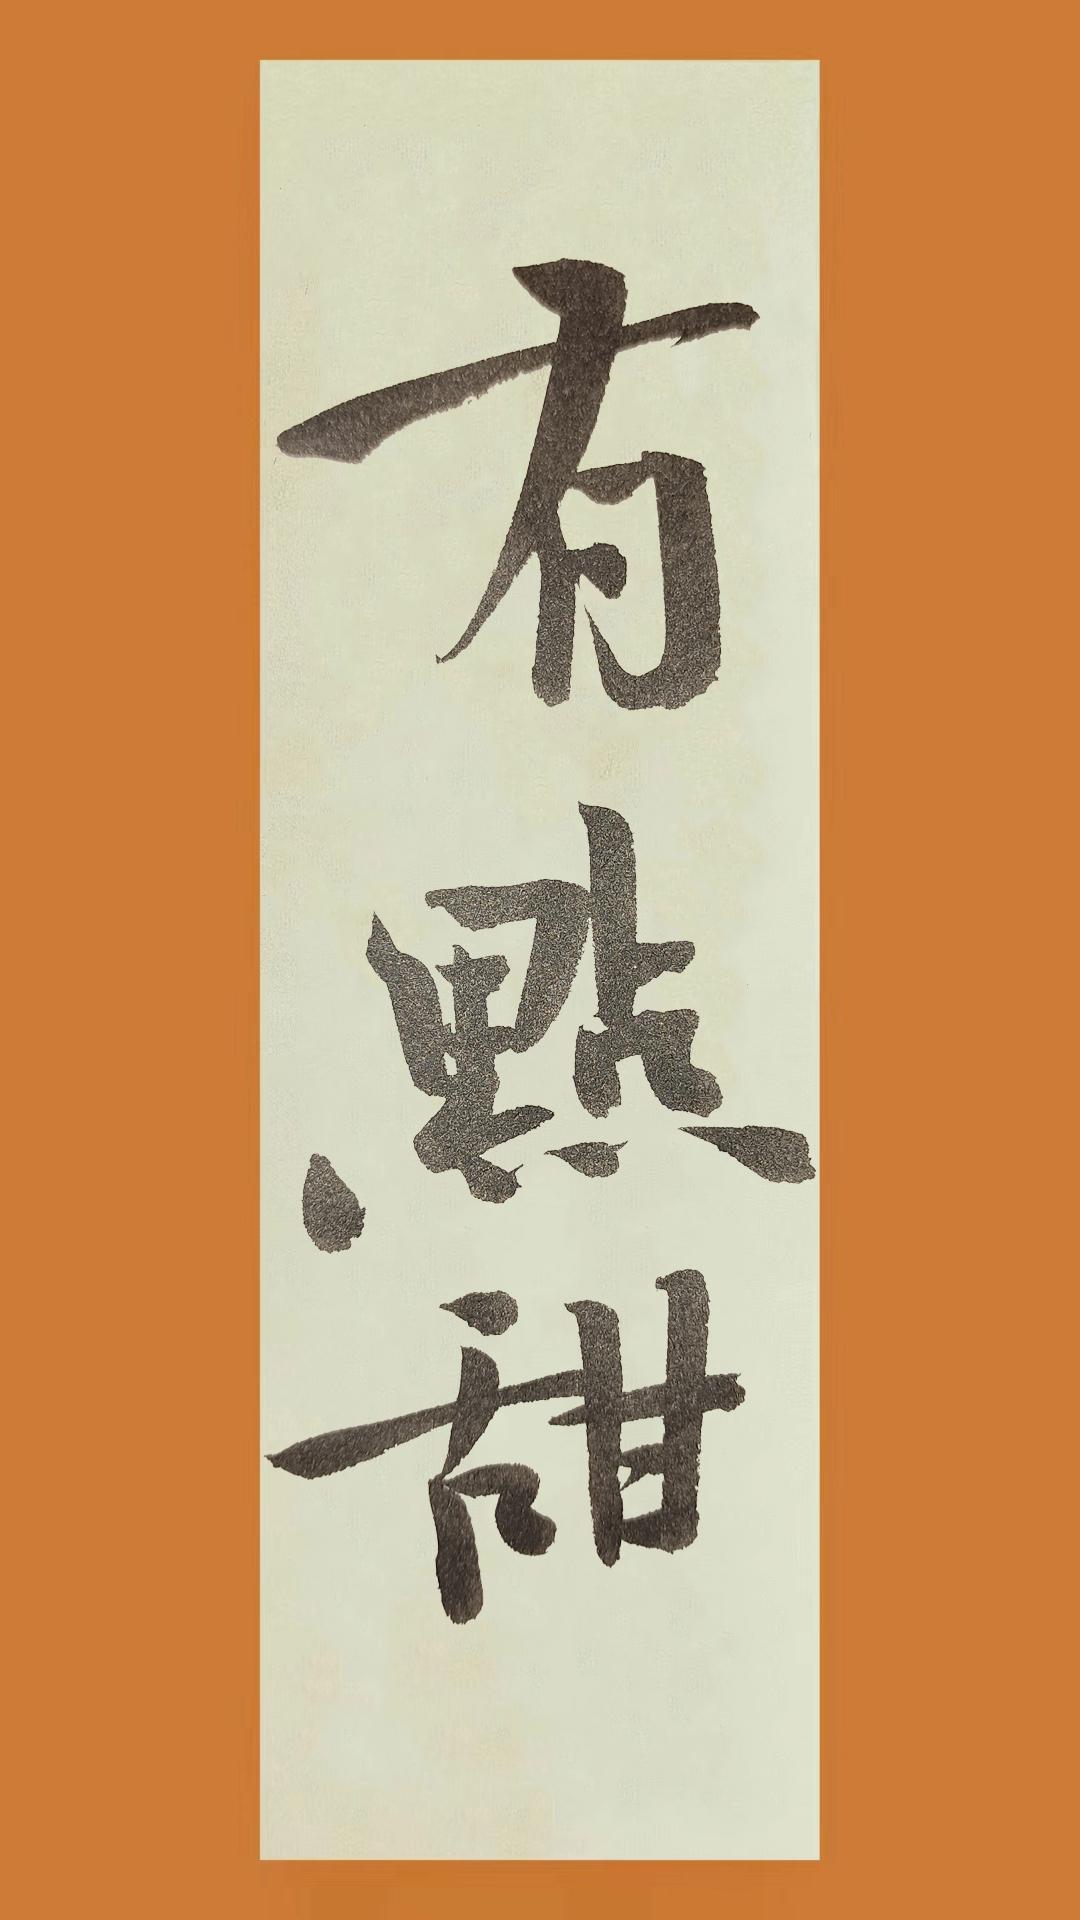 有點甜